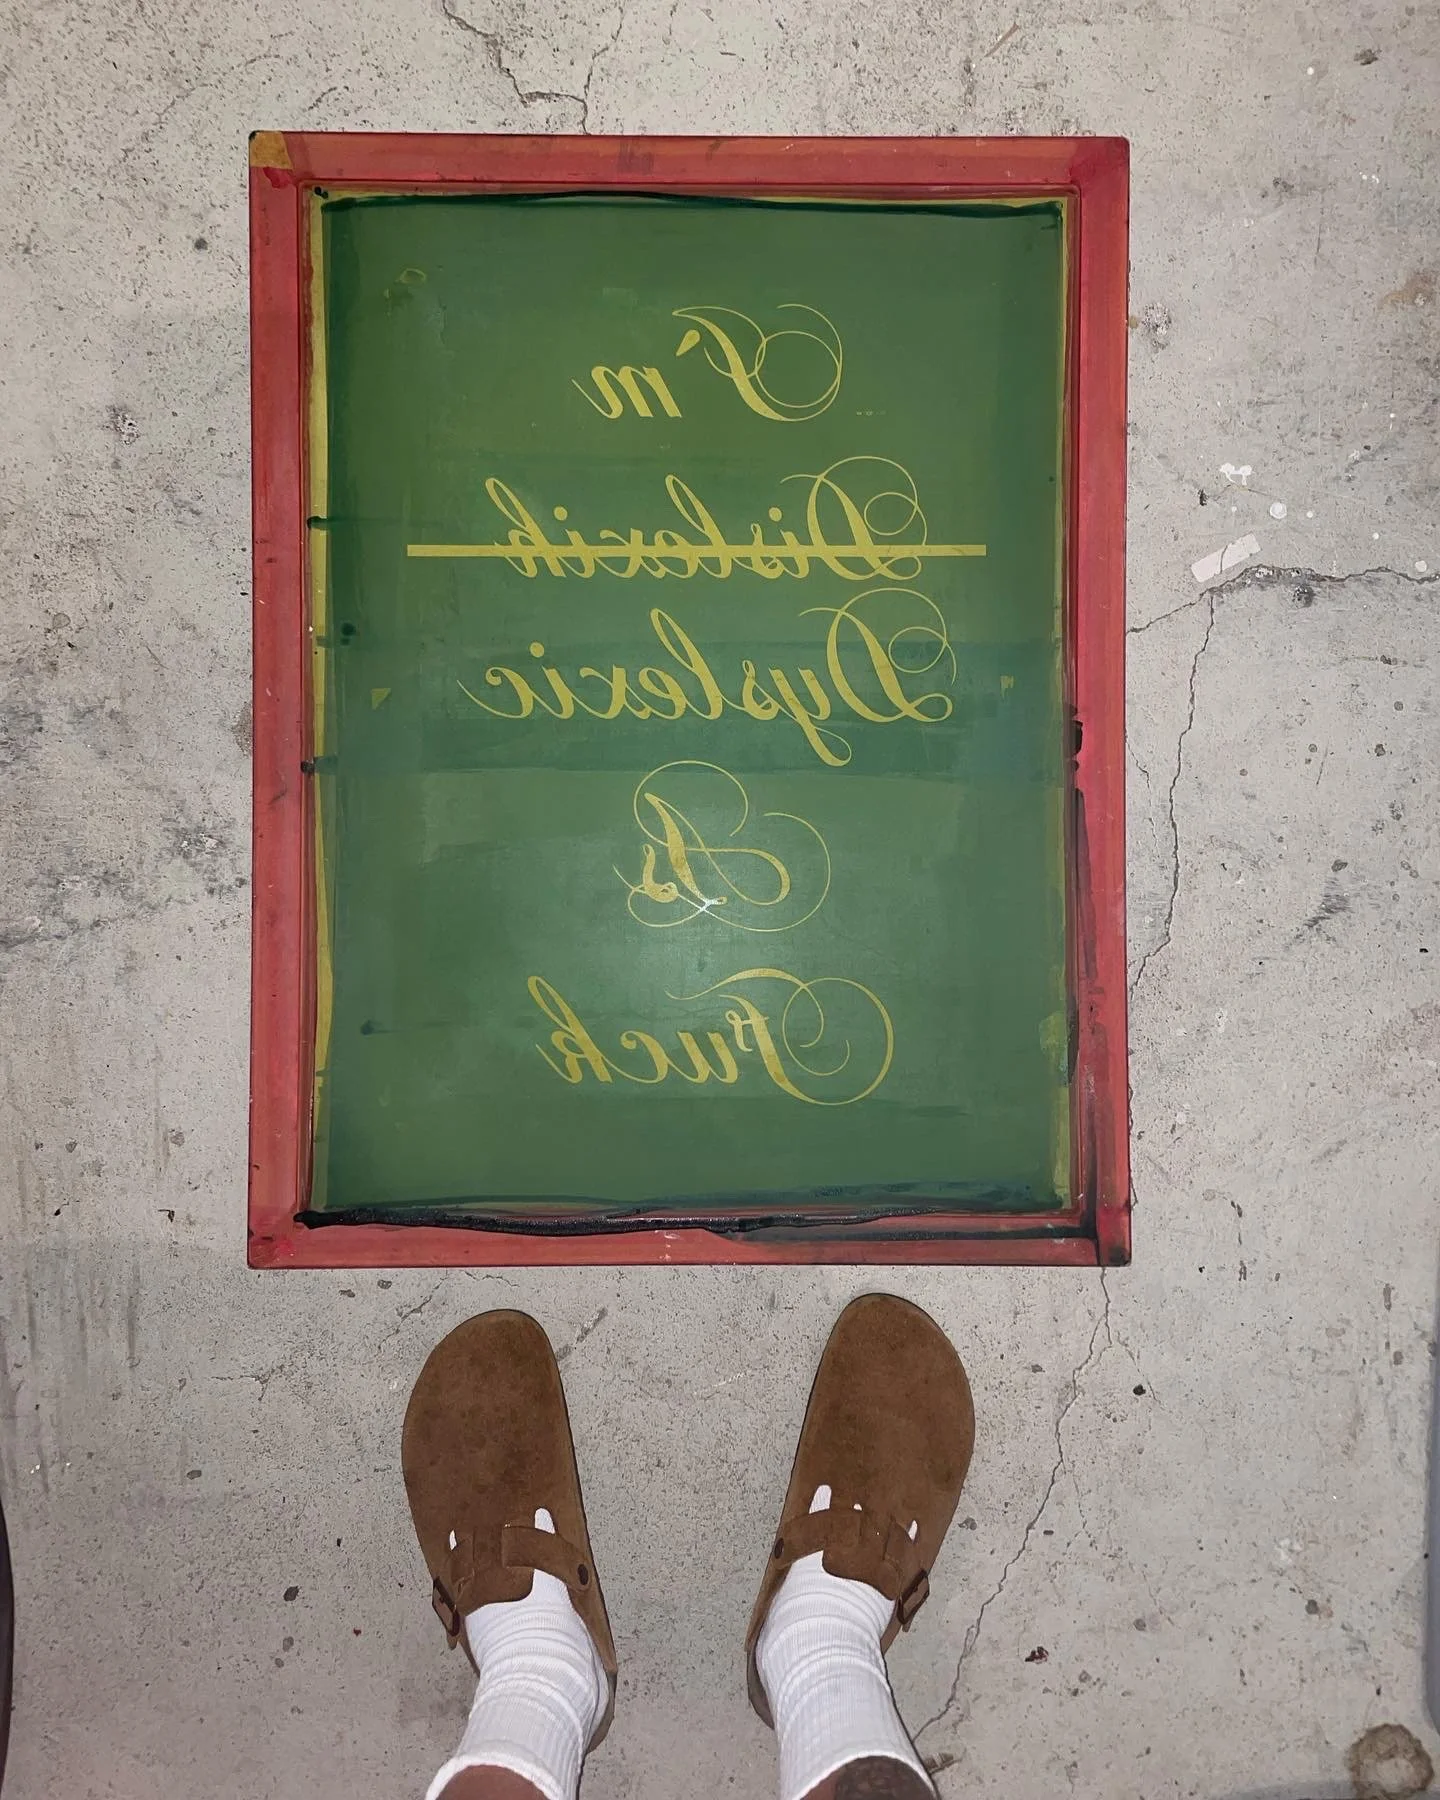 I'm
Dislexik
Dyslexic
As
Fuck